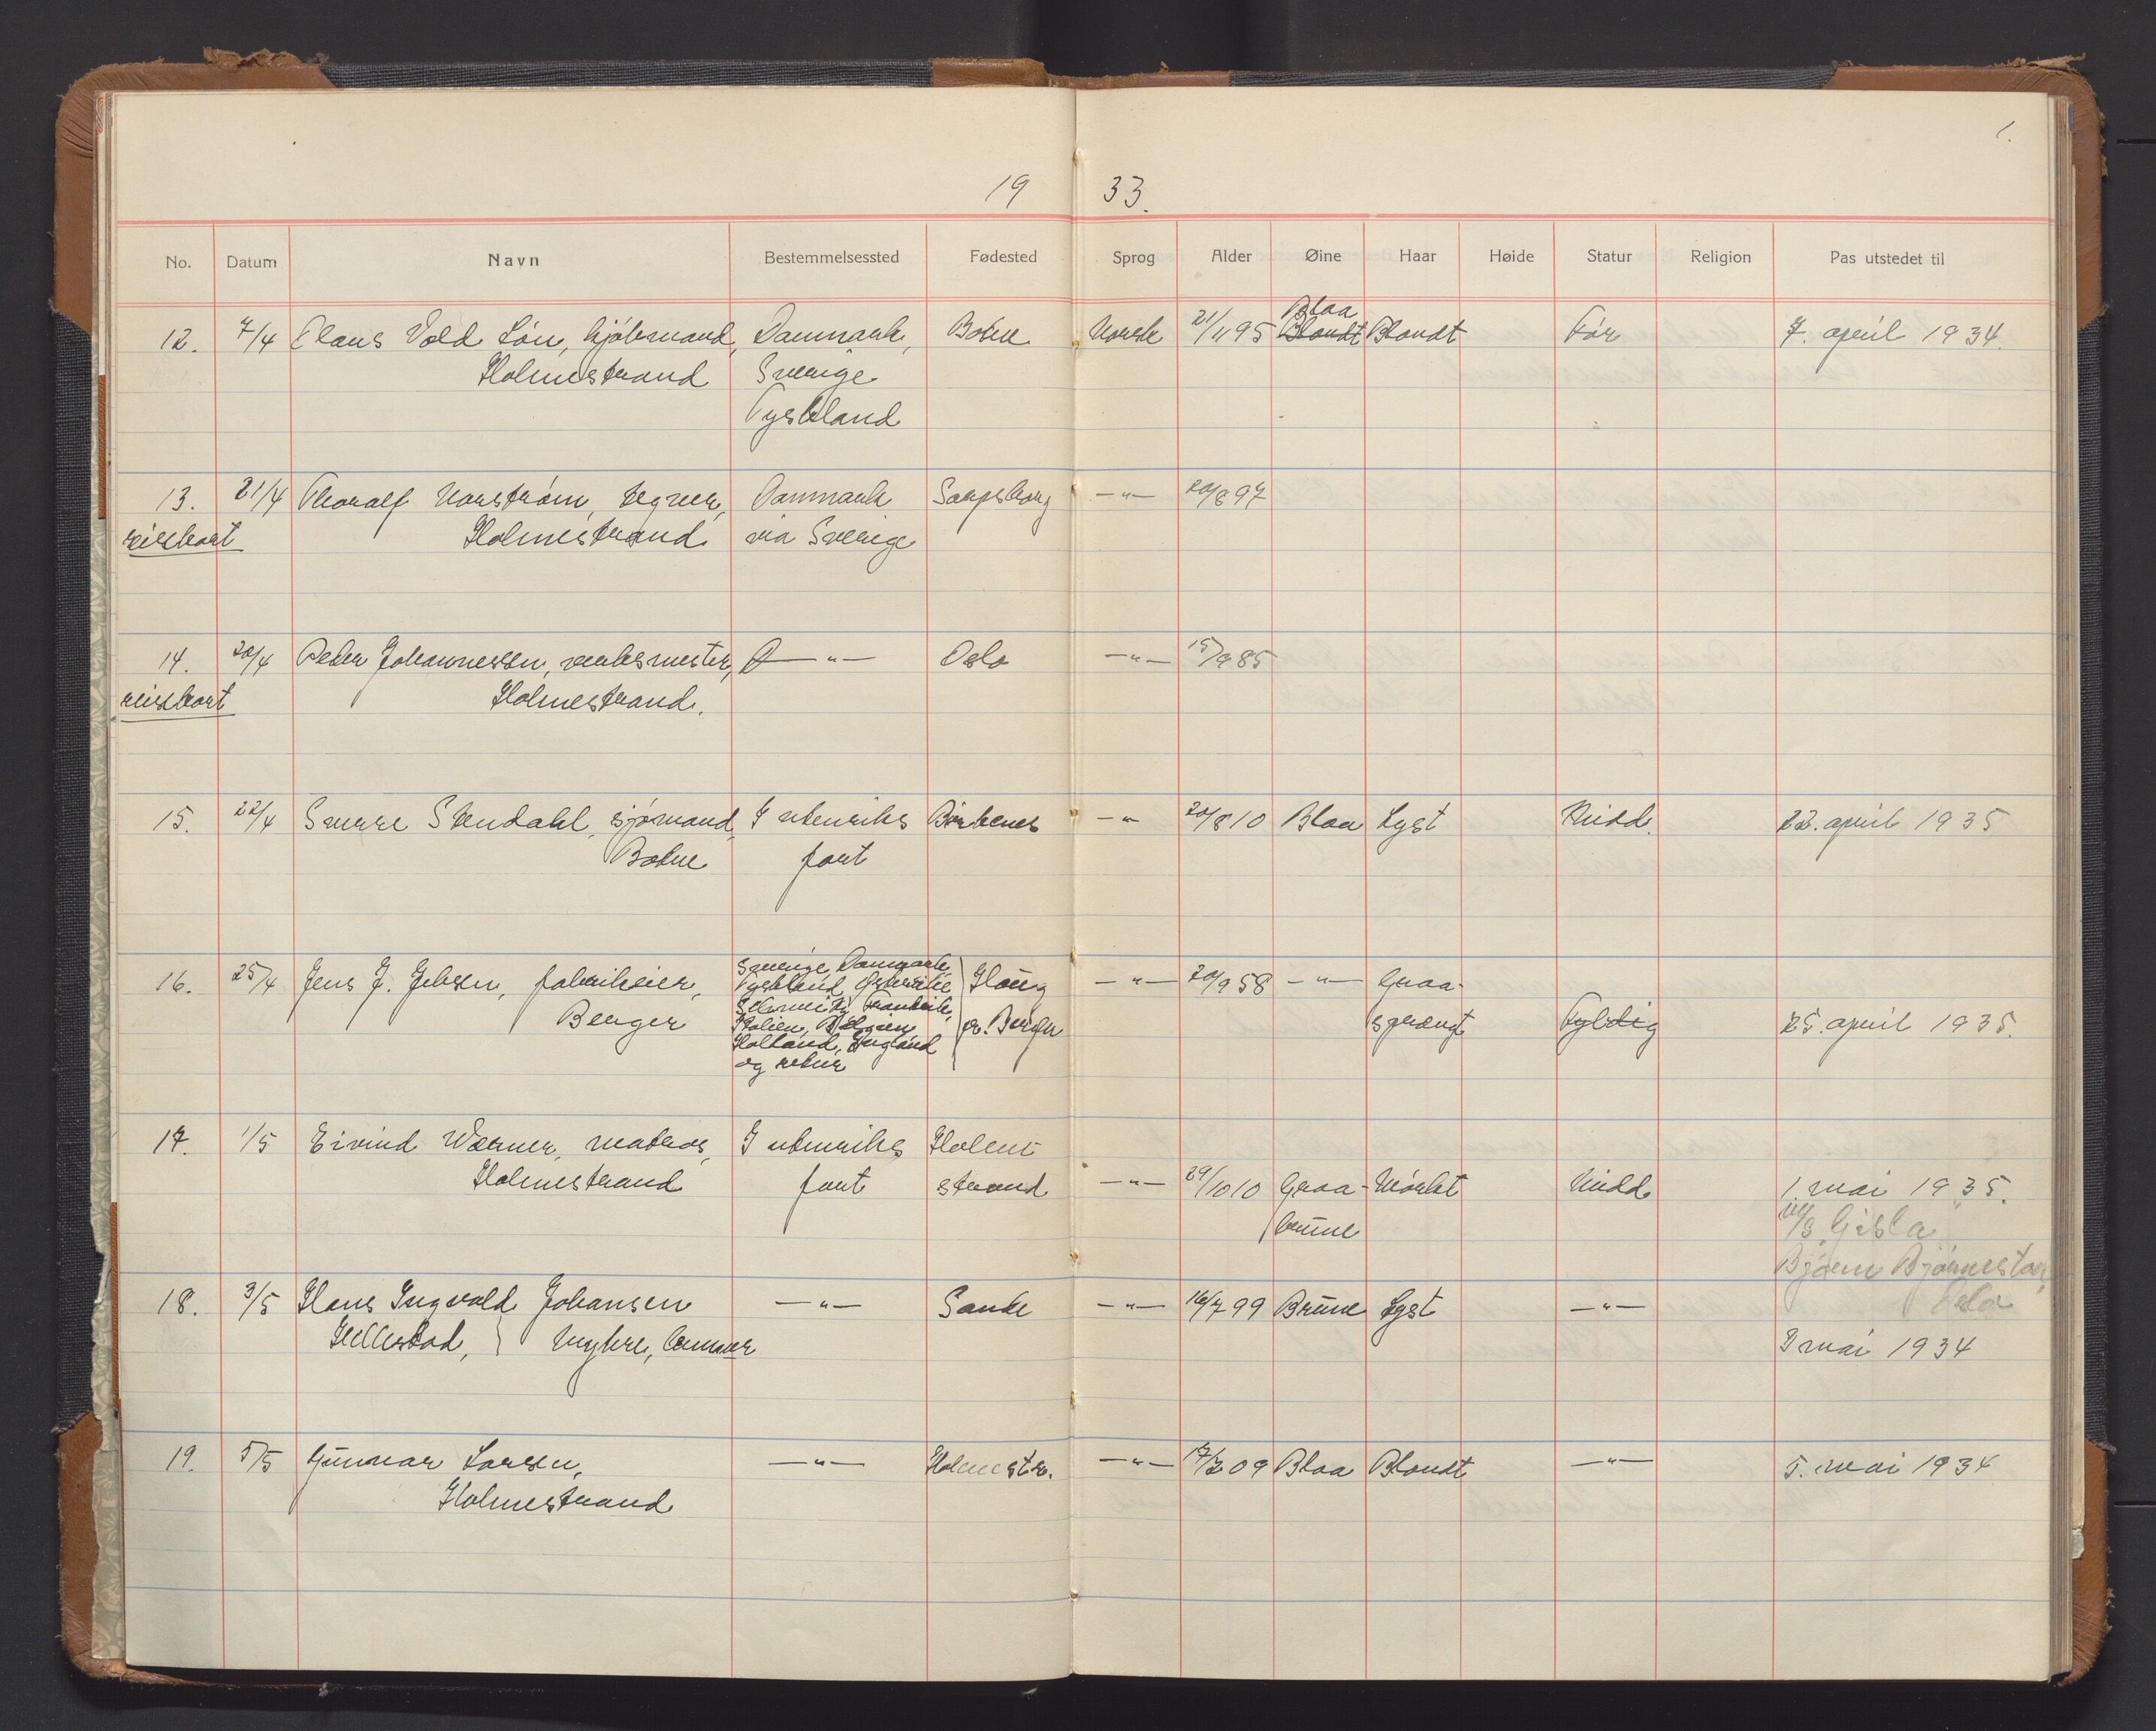 1.
19 33.
No. Datum Navn Bestemmelsessted Fødested Sprog Alder Øine Haar Høide Statur Religion Pas utstedet til
Blaa
12. 7/4 Claus Vold Løn, kjøbmand, Danmark, Botne Norsk 21/11 95 Blondt Blondt Før 7. april 1934.
Holmestrand Sverige
Tyskland
13. 21/4 Thoralf Norstrøm, tegner, Danmark Sarpsborg —"— 20/8 97
reisekort Holmestrand via Sverige
14. 20/4 Peder Johannessen, verksmester, —"— Oslo —"— 15/9 85
reisekort Holmestrand.
15. 22/4 Sverre Stendahl, sjømand, I utenriks Birkenes —"— 20/8 10 Blaa Lyst Midd. 22. april 1935
Botne fart
16. 25/4 Jens J. Jebsen, fabrikeier, Sverige, Danmark, Haug —"— 20/9 58 —"— Graa-
Tyskland, Østerrike
Schweitz, Frankrike,
Berger Italien, Belgien, pr. Bergen sprængt Fyldig 25. april 1935.
Holland, England
og retur
17. 1/5 Eivind Werner, matros, I utenriks Holme-
Holmestrand fart strand —"— 29/10 10 Graa- Mørkt Midd 1. mai 1935.
brune M/S Gisla
Bjørn Bjørnestad
18. 3/5 Hans Ingvald Johansen —"— Sande —"— 16/7 99 Brune Lyst —"— Oslo
Hillestad, 3 mai 1934
19. 5/5 Gunnar Larsen, —"— Holmestr. —"— 09 Blaa Blondt —"— 5. mai 1934
Holmestrand